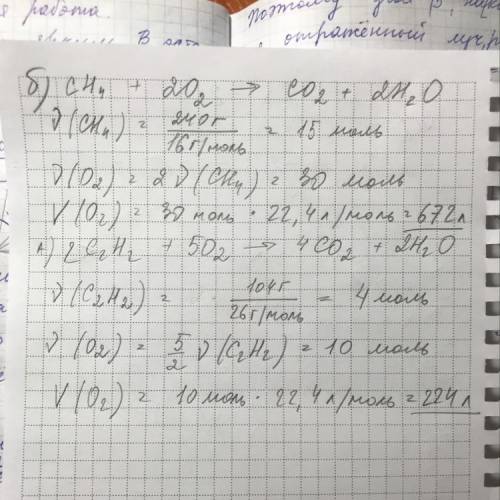 работа.
поэтому
отражённый луч,
б) CH4 + 2O2 → CO2 + 2H2O
ν(CH4) = 240г / 16г/моль = 15 моль
ν(O2) = 2ν(CH4) = 30 моль
V(O2) = 30 моль · 22,4 л/моль = 672 л
А) 2C2H2 + 5O2 → 4CO2 + 2H2O
ν(C2H2) = 104г / 26г/моль = 4 моль
ν(O2) = 5/2 ν(C2H2) = 10 моль
V(O2) = 10 моль · 22,4 л/моль = 224 л